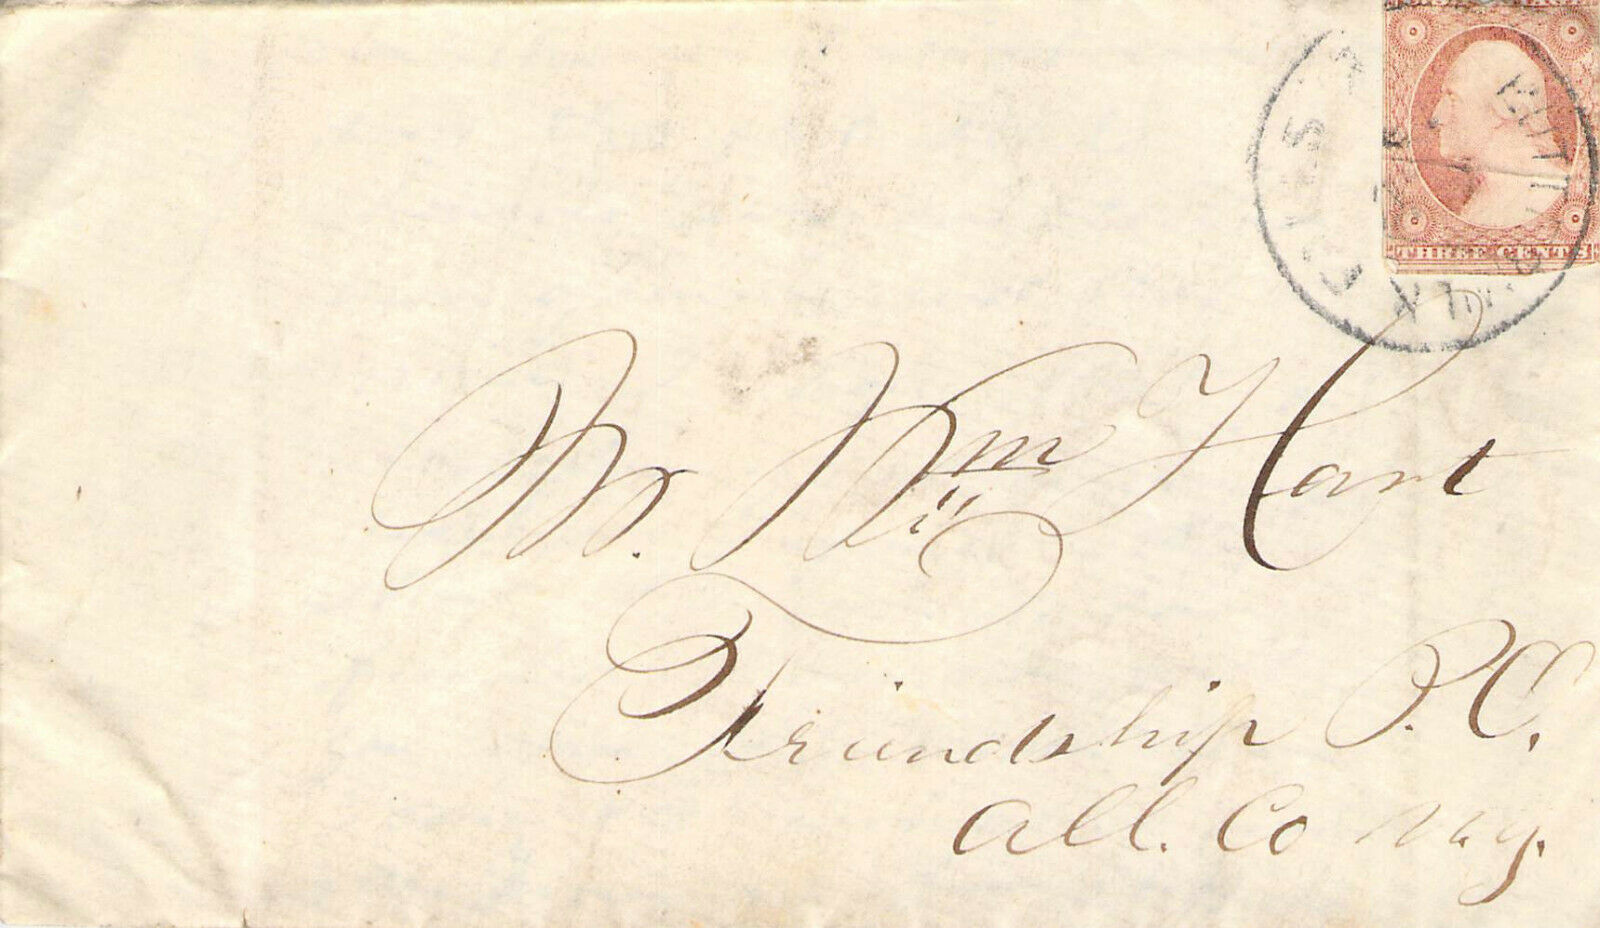 THREE CENTS
Mr. Wm Hart
Friendship P.O.
All. Co N.Y.